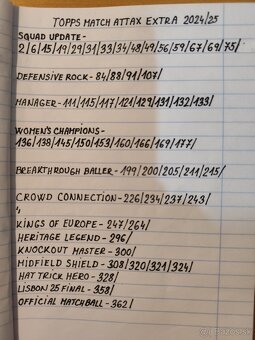 TOPPS MATCH ATTAX EXTRA 2024/25
SQUAD UPDATE -
2/6/15/19/29/31/33/34/48/49/56/59/67/69/75/
DEFENSIVE ROCK - 84/88/91/107/
MANAGER - 111/115/117/121/129/131/132/133/
WOMEN'S CHAMPIONS -
136/138/145/150/153/160/166/169/177/
BREAKTHROUGH BALLER - 199/200/205/211/215/
CROWD CONNECTION - 226/234/237/243/
KINGS OF EUROPE - 247/264/
HERITAGE LEGEND - 296/
KNOCKOUT MASTER - 300/
MIDFIELD SHIELD - 308/320/321/324/
HAT TRICK HERO - 328/
LISBON 25 FINAL - 358/
OFFICIAL MATCHBALL - 362/